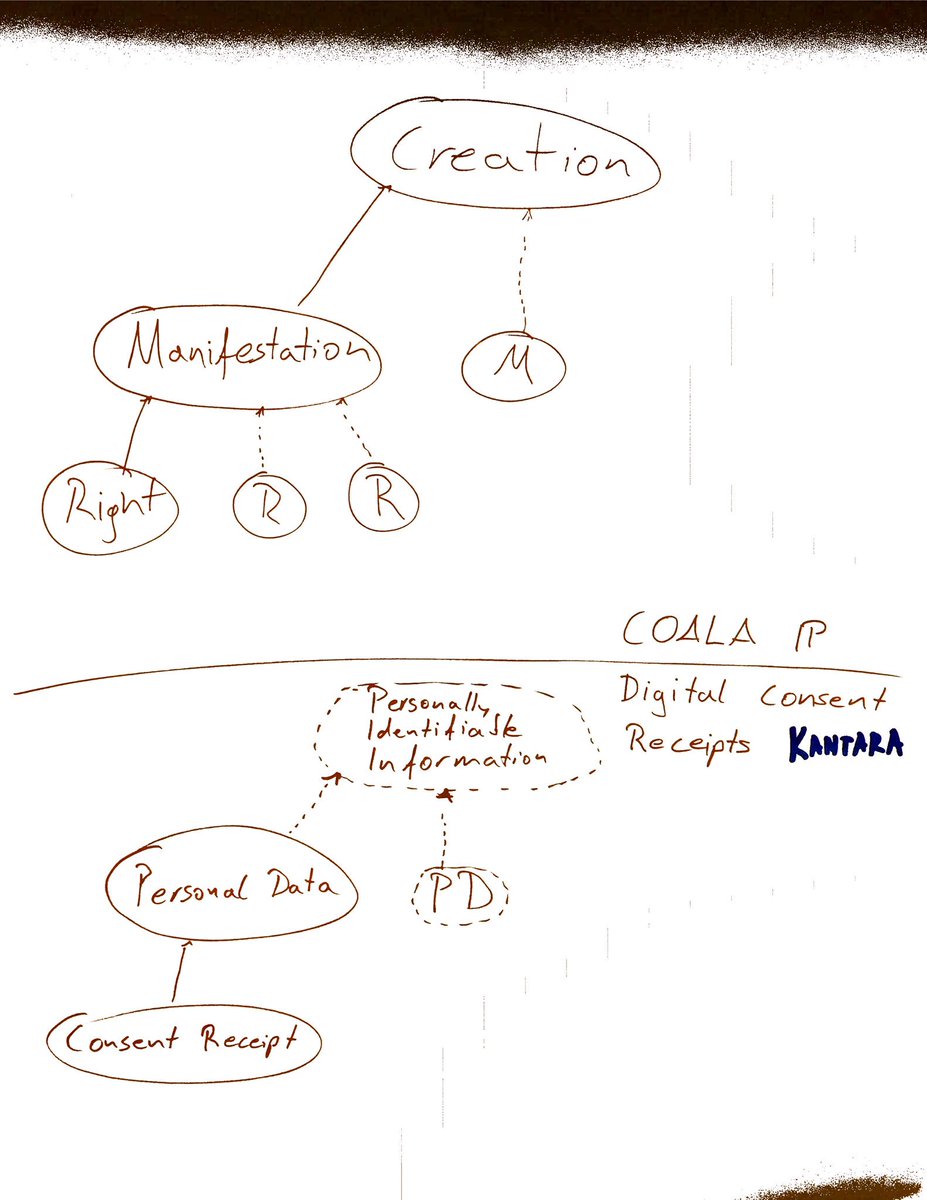 Creation
Manifestation
M
Right
R
R
COALA IP
Digital Consent
Receipts KANTARA
Personally
Identifiable
Information
Personal Data
PD
Consent Receipt